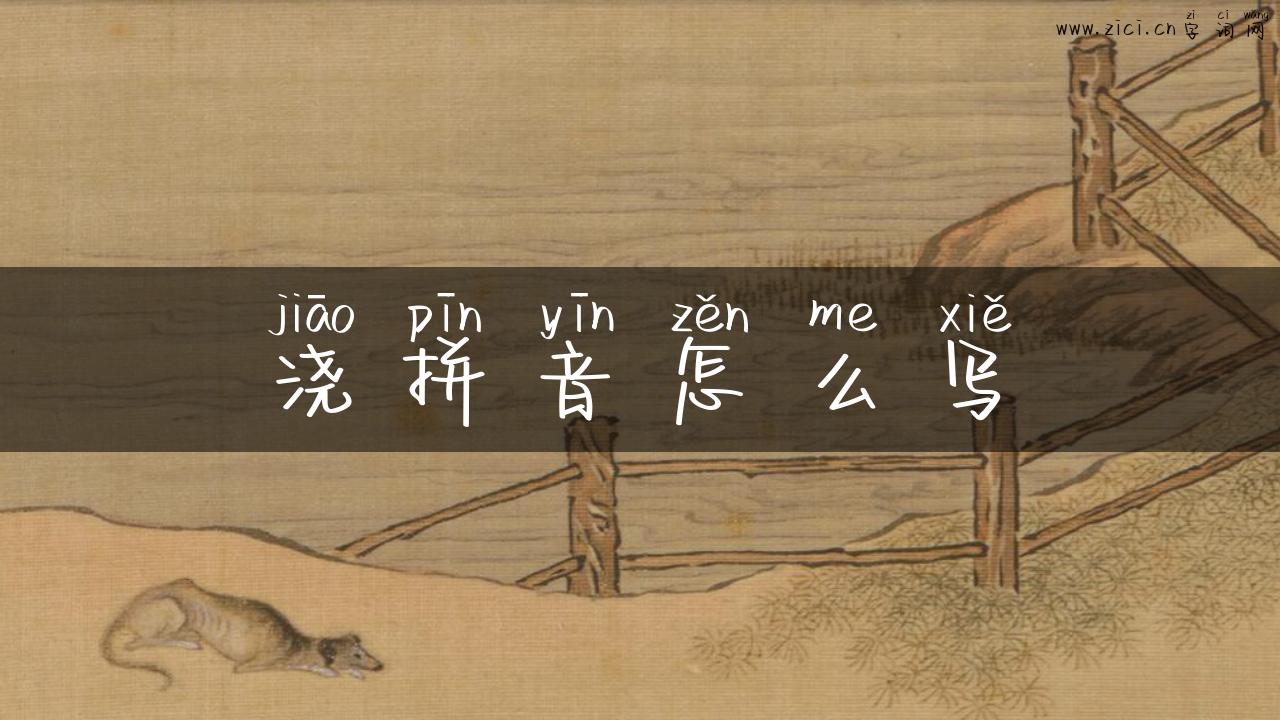 zi ci wang
www.zici.cn 字词网
jiāo pīn yīn zěn me xiě
浇拼音怎么写